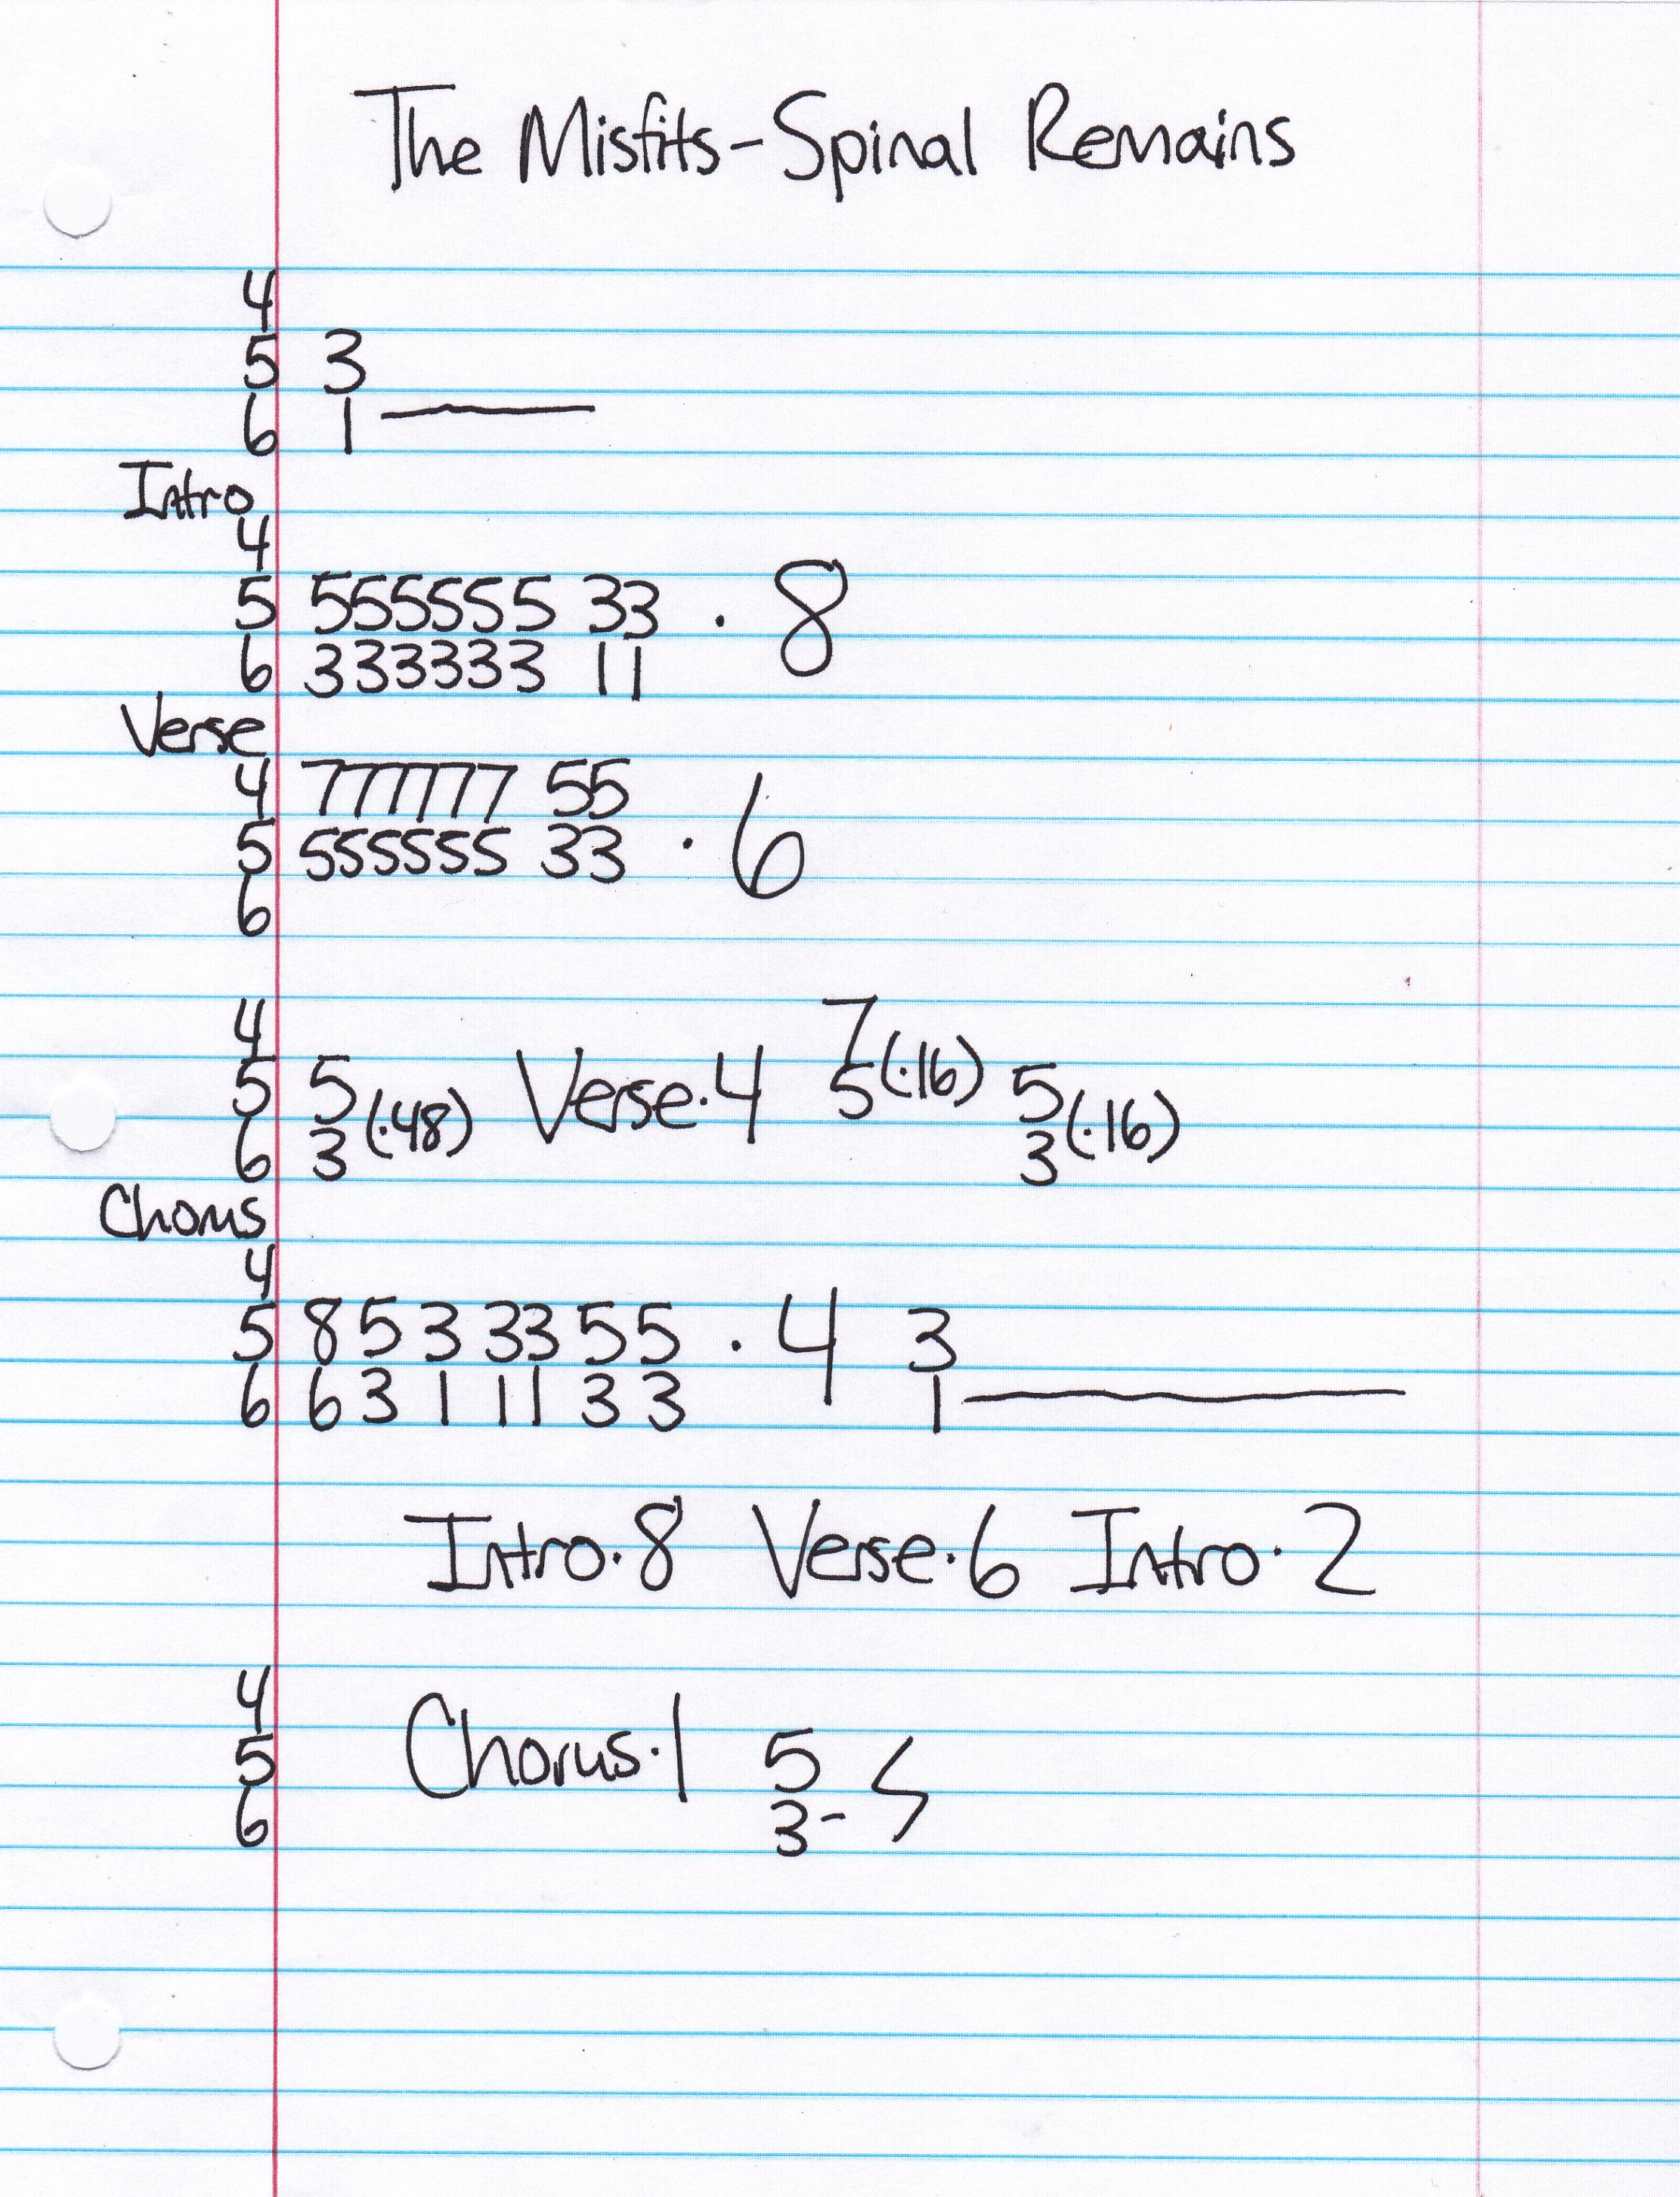 The Misfits-Spinal Remains
4
5 3
6 1
Intro
4
5 555555 33 · 8
6 333333 11
Verse
4 777777 55
5 555555 33 · 6
6
4 7
5 5 (·48) Verse·4 5 (·16) 5 (·16)
6 3 3
Chorus
4
5 8 5 3 33 55 · 4 3
6 6 3 1 11 3 3 1
Intro·8 Verse·6 Intro·2
4
5 Chorus·1 5
6 3-